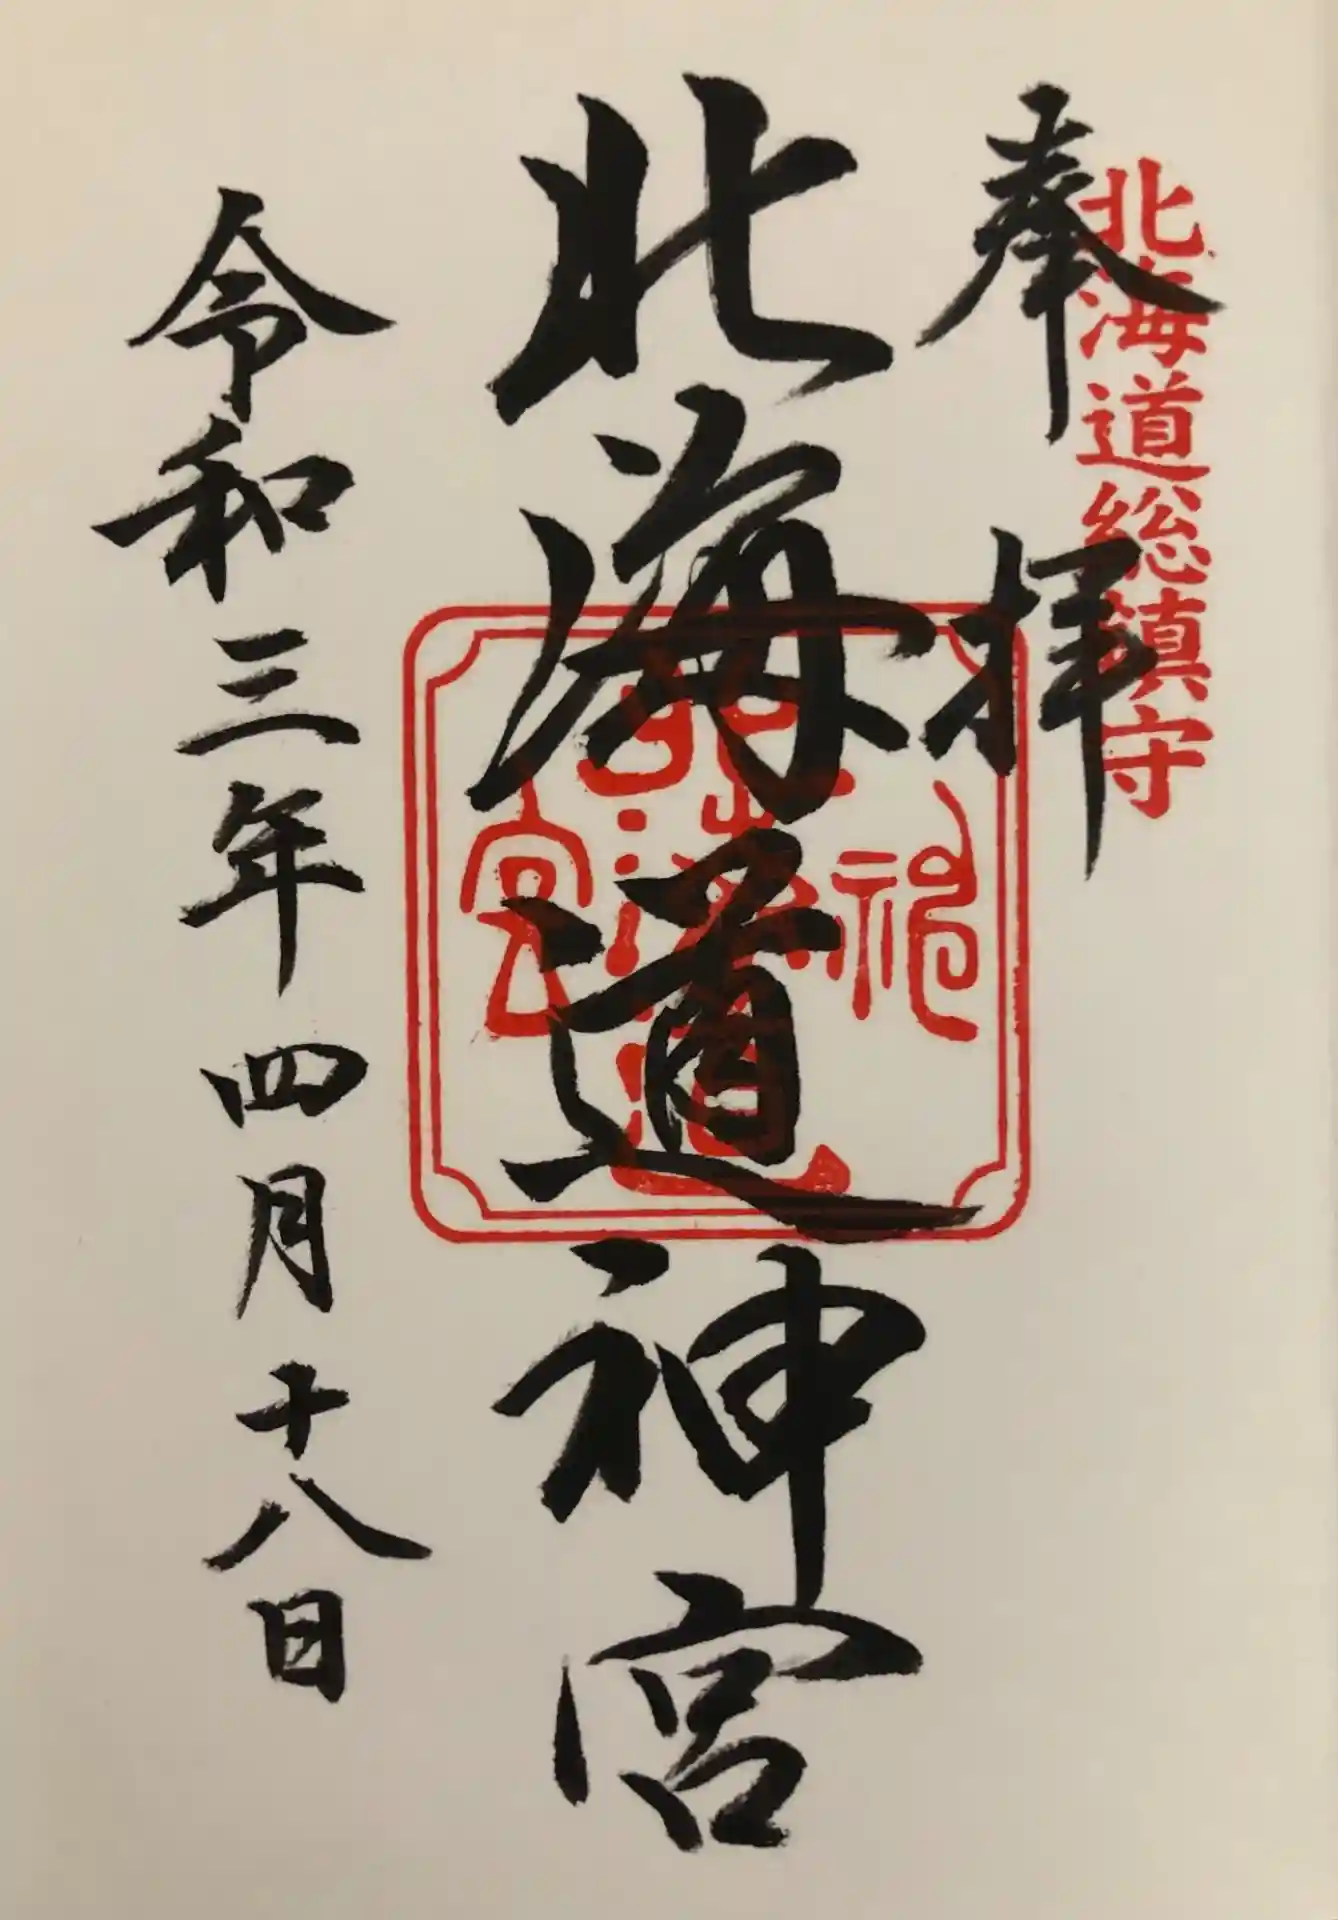 奉拝
北海道総鎮守
北海道神宮
令和三年四月十八日